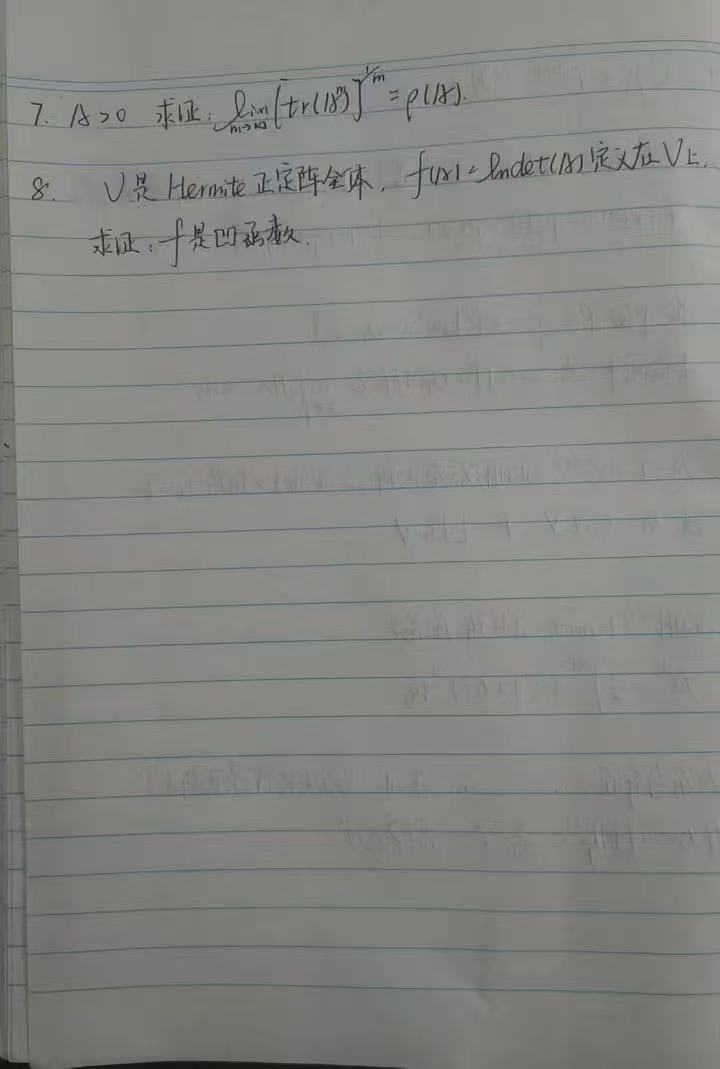 7. A>0 求证: lim_{m→∞} [tr(A^m)]^{1/m} = ρ(A).
8. V是 Hermite 正定阵全体, f(A) = ln det(A) 定义在 V上,
求证: f 是凹函数.